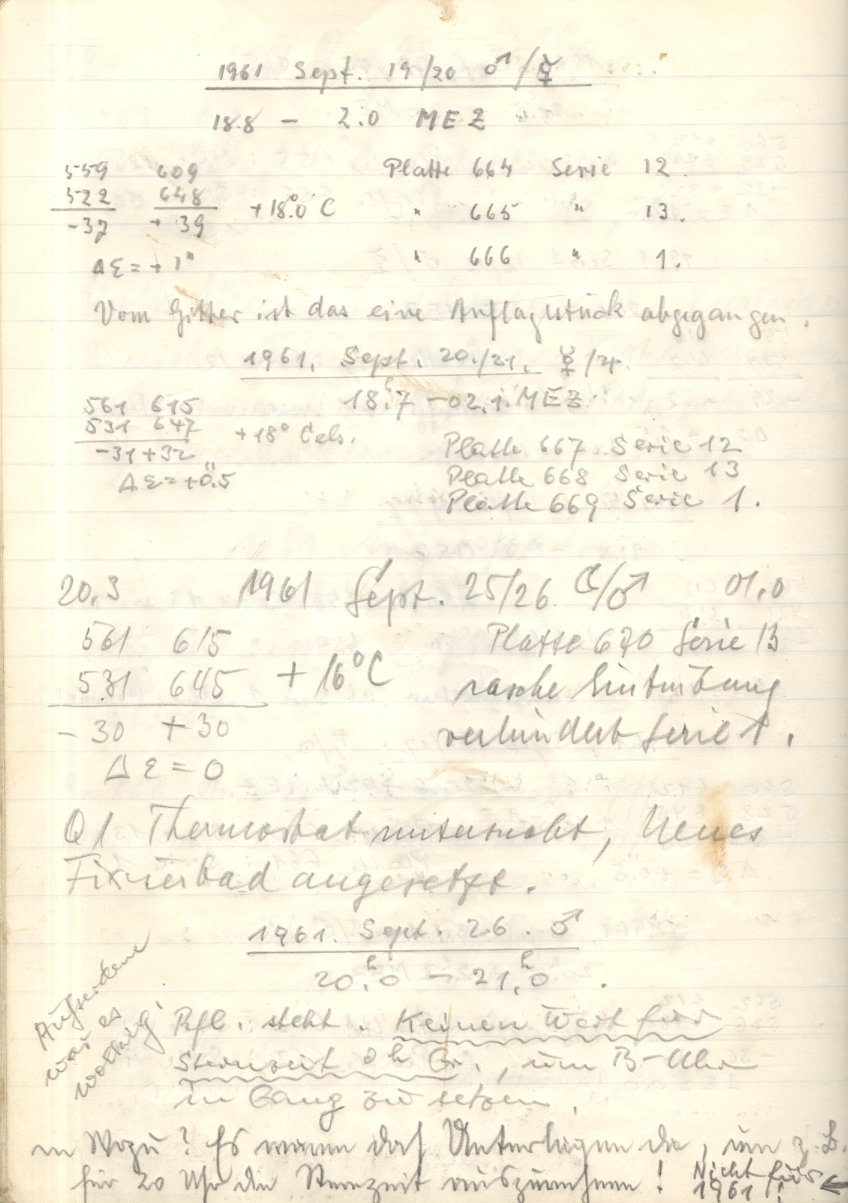 1961 Sept. 19/20 ♂/☿
18.8 – 2.0 MEZ
559 609 Platte 664 Serie 12.
522 648 +18.0° C " 665 " 13.
-37 +39
Δε = +1" " 666 " 1.
Vom Gitter ist das eine Auflagstück abgegangen.
1961. Sept. 20./21. ☿/♃
18.h7 – 02.1. MEZ
561 615
531 647 +18° Cels. Platte 667 Serie 12
-31 +32 Platte 668 Serie 13
Δε = +0".5 Platte 669 Serie 1.
20.3 1961 Sept. 25/26. ☾/♂ 01.0
561 615 Platte 670 Serie 13
531 645 + 16° C rasche Eintrübung
- 30 + 30 verhindert Serie 1.
Δε = 0
Q1 Thermostat untersucht, Neues
Fixierbad angesetzt.
1961. Sept. 26. ♂
20.h0 – 21.h0
Außerdem
war es
wolkig.
Rfl. steht. Keinen Wert für
Sternzeit 0h Gr., um B-Uhr
in Gang zu setzen.
Wozu? Es waren doch Unterlagen da, um z.B.
für 20 Uhr die Sternzeit auszurechnen! Nicht für
1961!